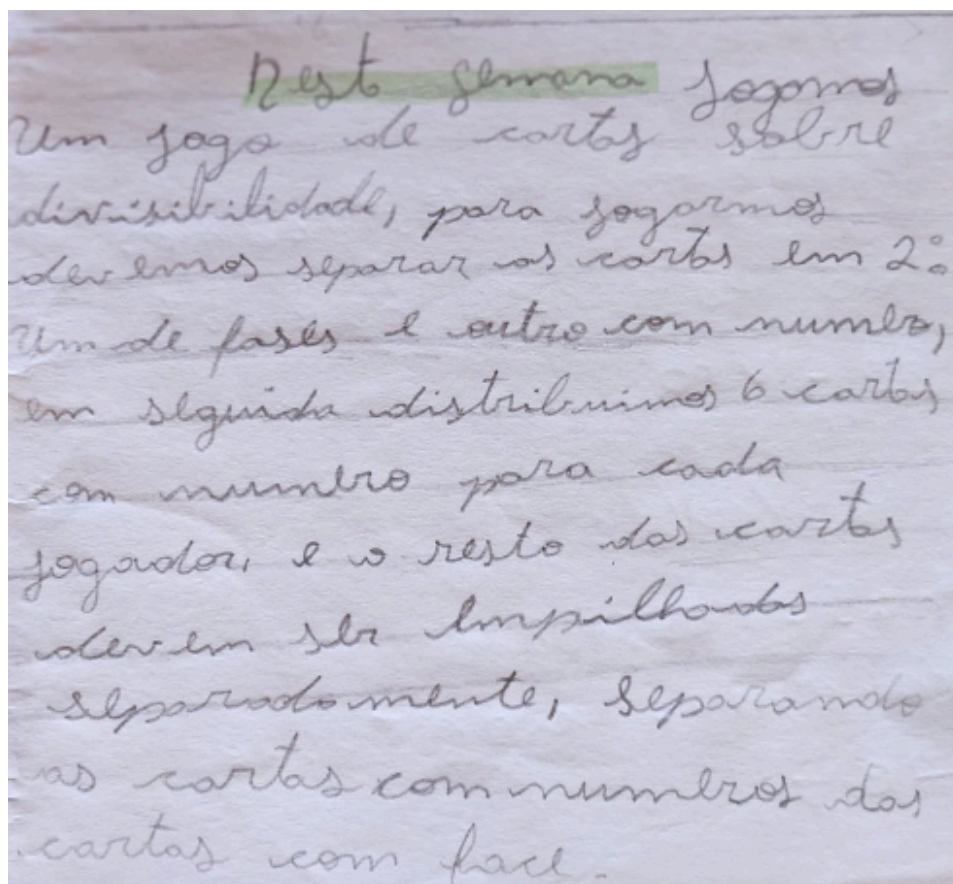 Nest semana jogamos
Um jogo de cartas sobre
divisibilidade, para jogarmos
devemos separar as cartas em 2:
Um de fases e outro com numero,
em seguida distribuimos 6 cartas
com numero para cada
jogador, e o resto das cartas
devem ser empilhadas
separadamente, separando
as cartas com numeros das
cartas com face.